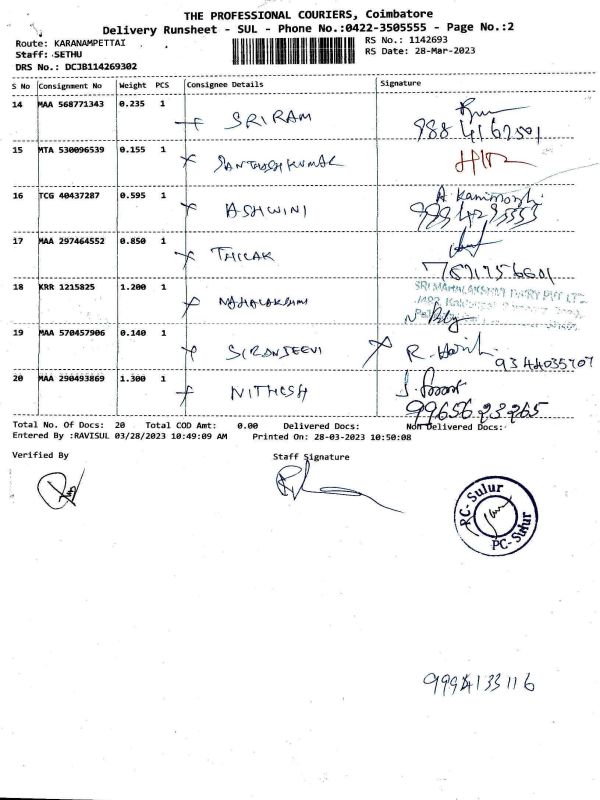 THE PROFESSIONAL COURIERS, Coimbatore
Delivery Runsheet - SUL - Phone No.:0422-3505555 - Page No.:2
Route: KARANAMPETTAI RS No.: 1142693
Staff: SETHU RS Date: 28-Mar-2023
DRS No.: DCJB114269302
S No Consignment No Weight PCS Consignee Details Signature
14 MAA 568771343 0.235 1 SRIRAM
9884167501
15 MTA 530096539 0.155 1 SANTHOSH KUMAR
16 TCG 40437287 0.595 1 ASHWINI
17 MAA 297464552 0.850 1 THILAK
18 KRR 1215825 1.200 1 MAHALAKSHMI
SRI MAHALAKSHMI DAIRY PVT LTD.
19 MAA 570457906 0.140 1 SIRANJEEVI R. Harish
9344035707
20 MAA 290493869 1.300 1 NITHESH
99656 23265
Total No. Of Docs: 20 Total COD Amt: 0.00 Delivered Docs: Non Delivered Docs:
Entered By :RAVISUL 03/28/2023 10:49:09 AM Printed On: 28-03-2023 10:50:08
Verified By Staff Signature
PC-Sulur
PC-Sulur
9994133116